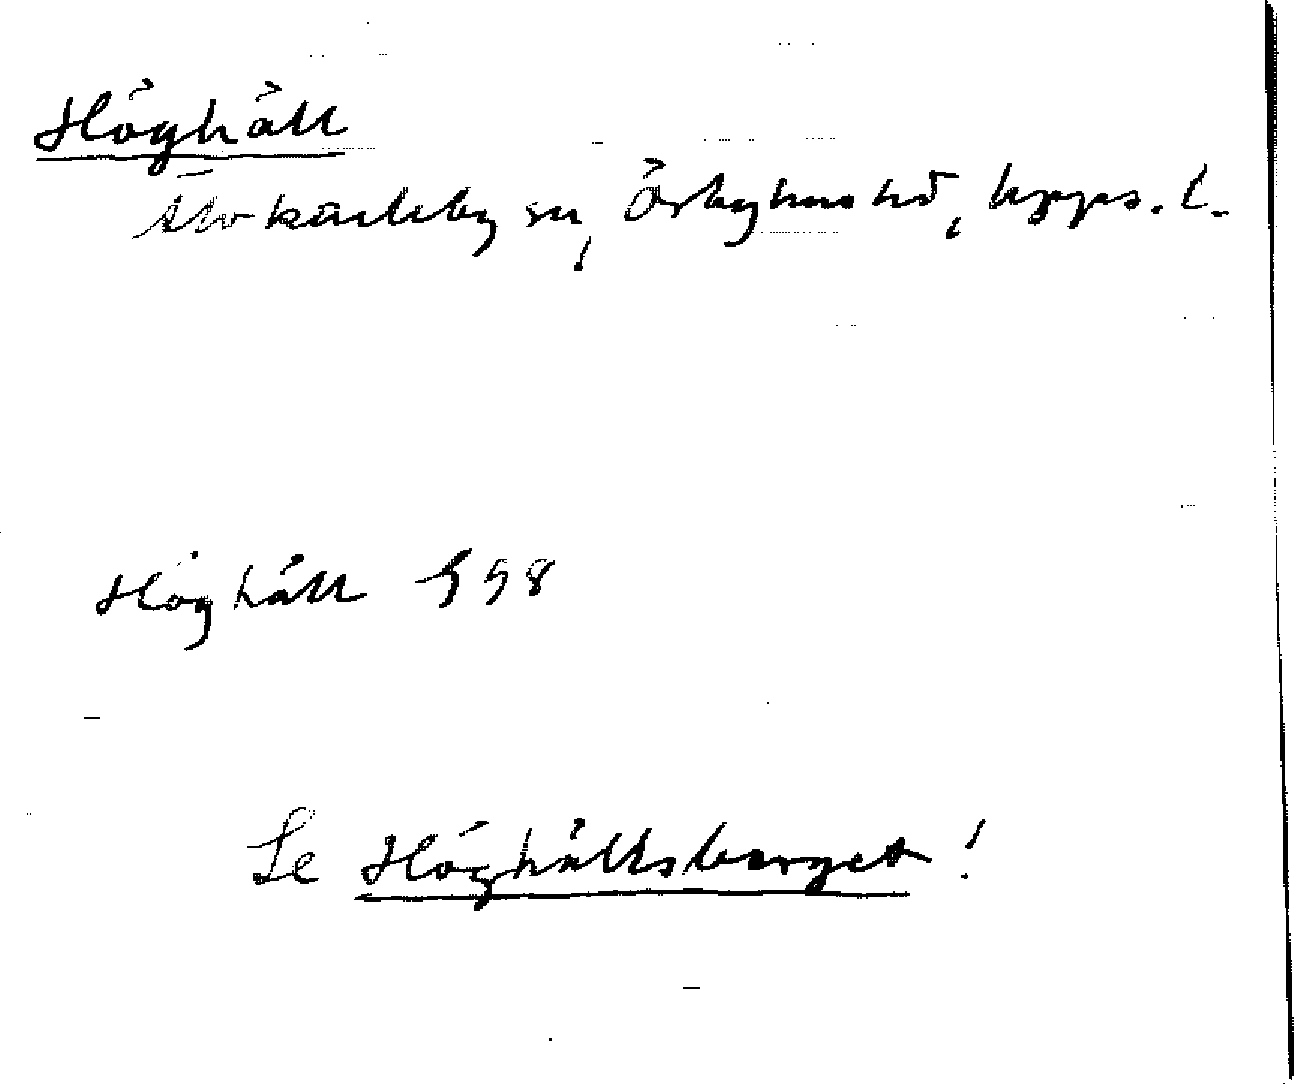 Höghäll
Älvkarleby sn, Örbyhus hd, Upps. l.
Höghäll § 58
Se Höghällsberget!